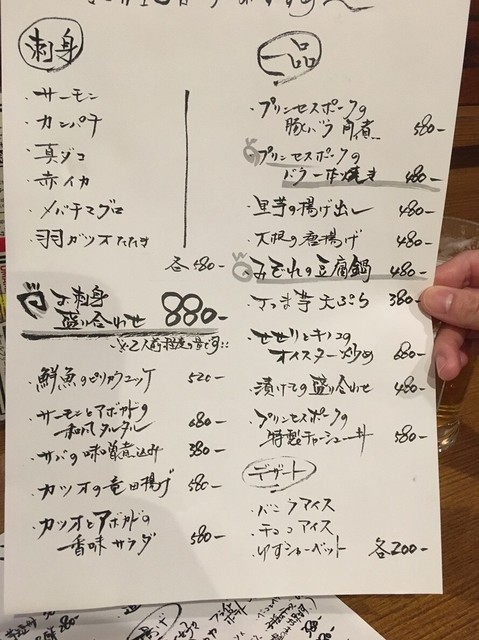 刺身
・サーモン
・カンパチ
・真ダコ
・赤イカ
・メバチマグロ
・羽ガツオたたき
各580-
お刺身
盛り合わせ 880-
※2人前程度の量です!!
・鮮魚のピリカラユッケ 520-
・サーモンとアボカドの
和風タルタル 680-
・サバの味噌煮込み 380-
・カツオの竜田揚げ 580-
・カツオとアボカドの
香味サラダ 580-
一品
・プリンセスポークの
豚バラ角煮 580-
プリンセスポークの
バラ一本焼き 480-
・里芋の揚げ出し 480-
・大根の唐揚げ 480-
みぞれの豆腐鍋 480-
・さつま芋天ぷら 380-
・せせりとキノコの
オイスター炒め 680-
・漬けての盛り合わせ 480-
・プリンセスポークの
特製チャーシュー丼 580-
デザート
・バニラアイス
・チョコアイス
・ゆずシャーベット 各200-